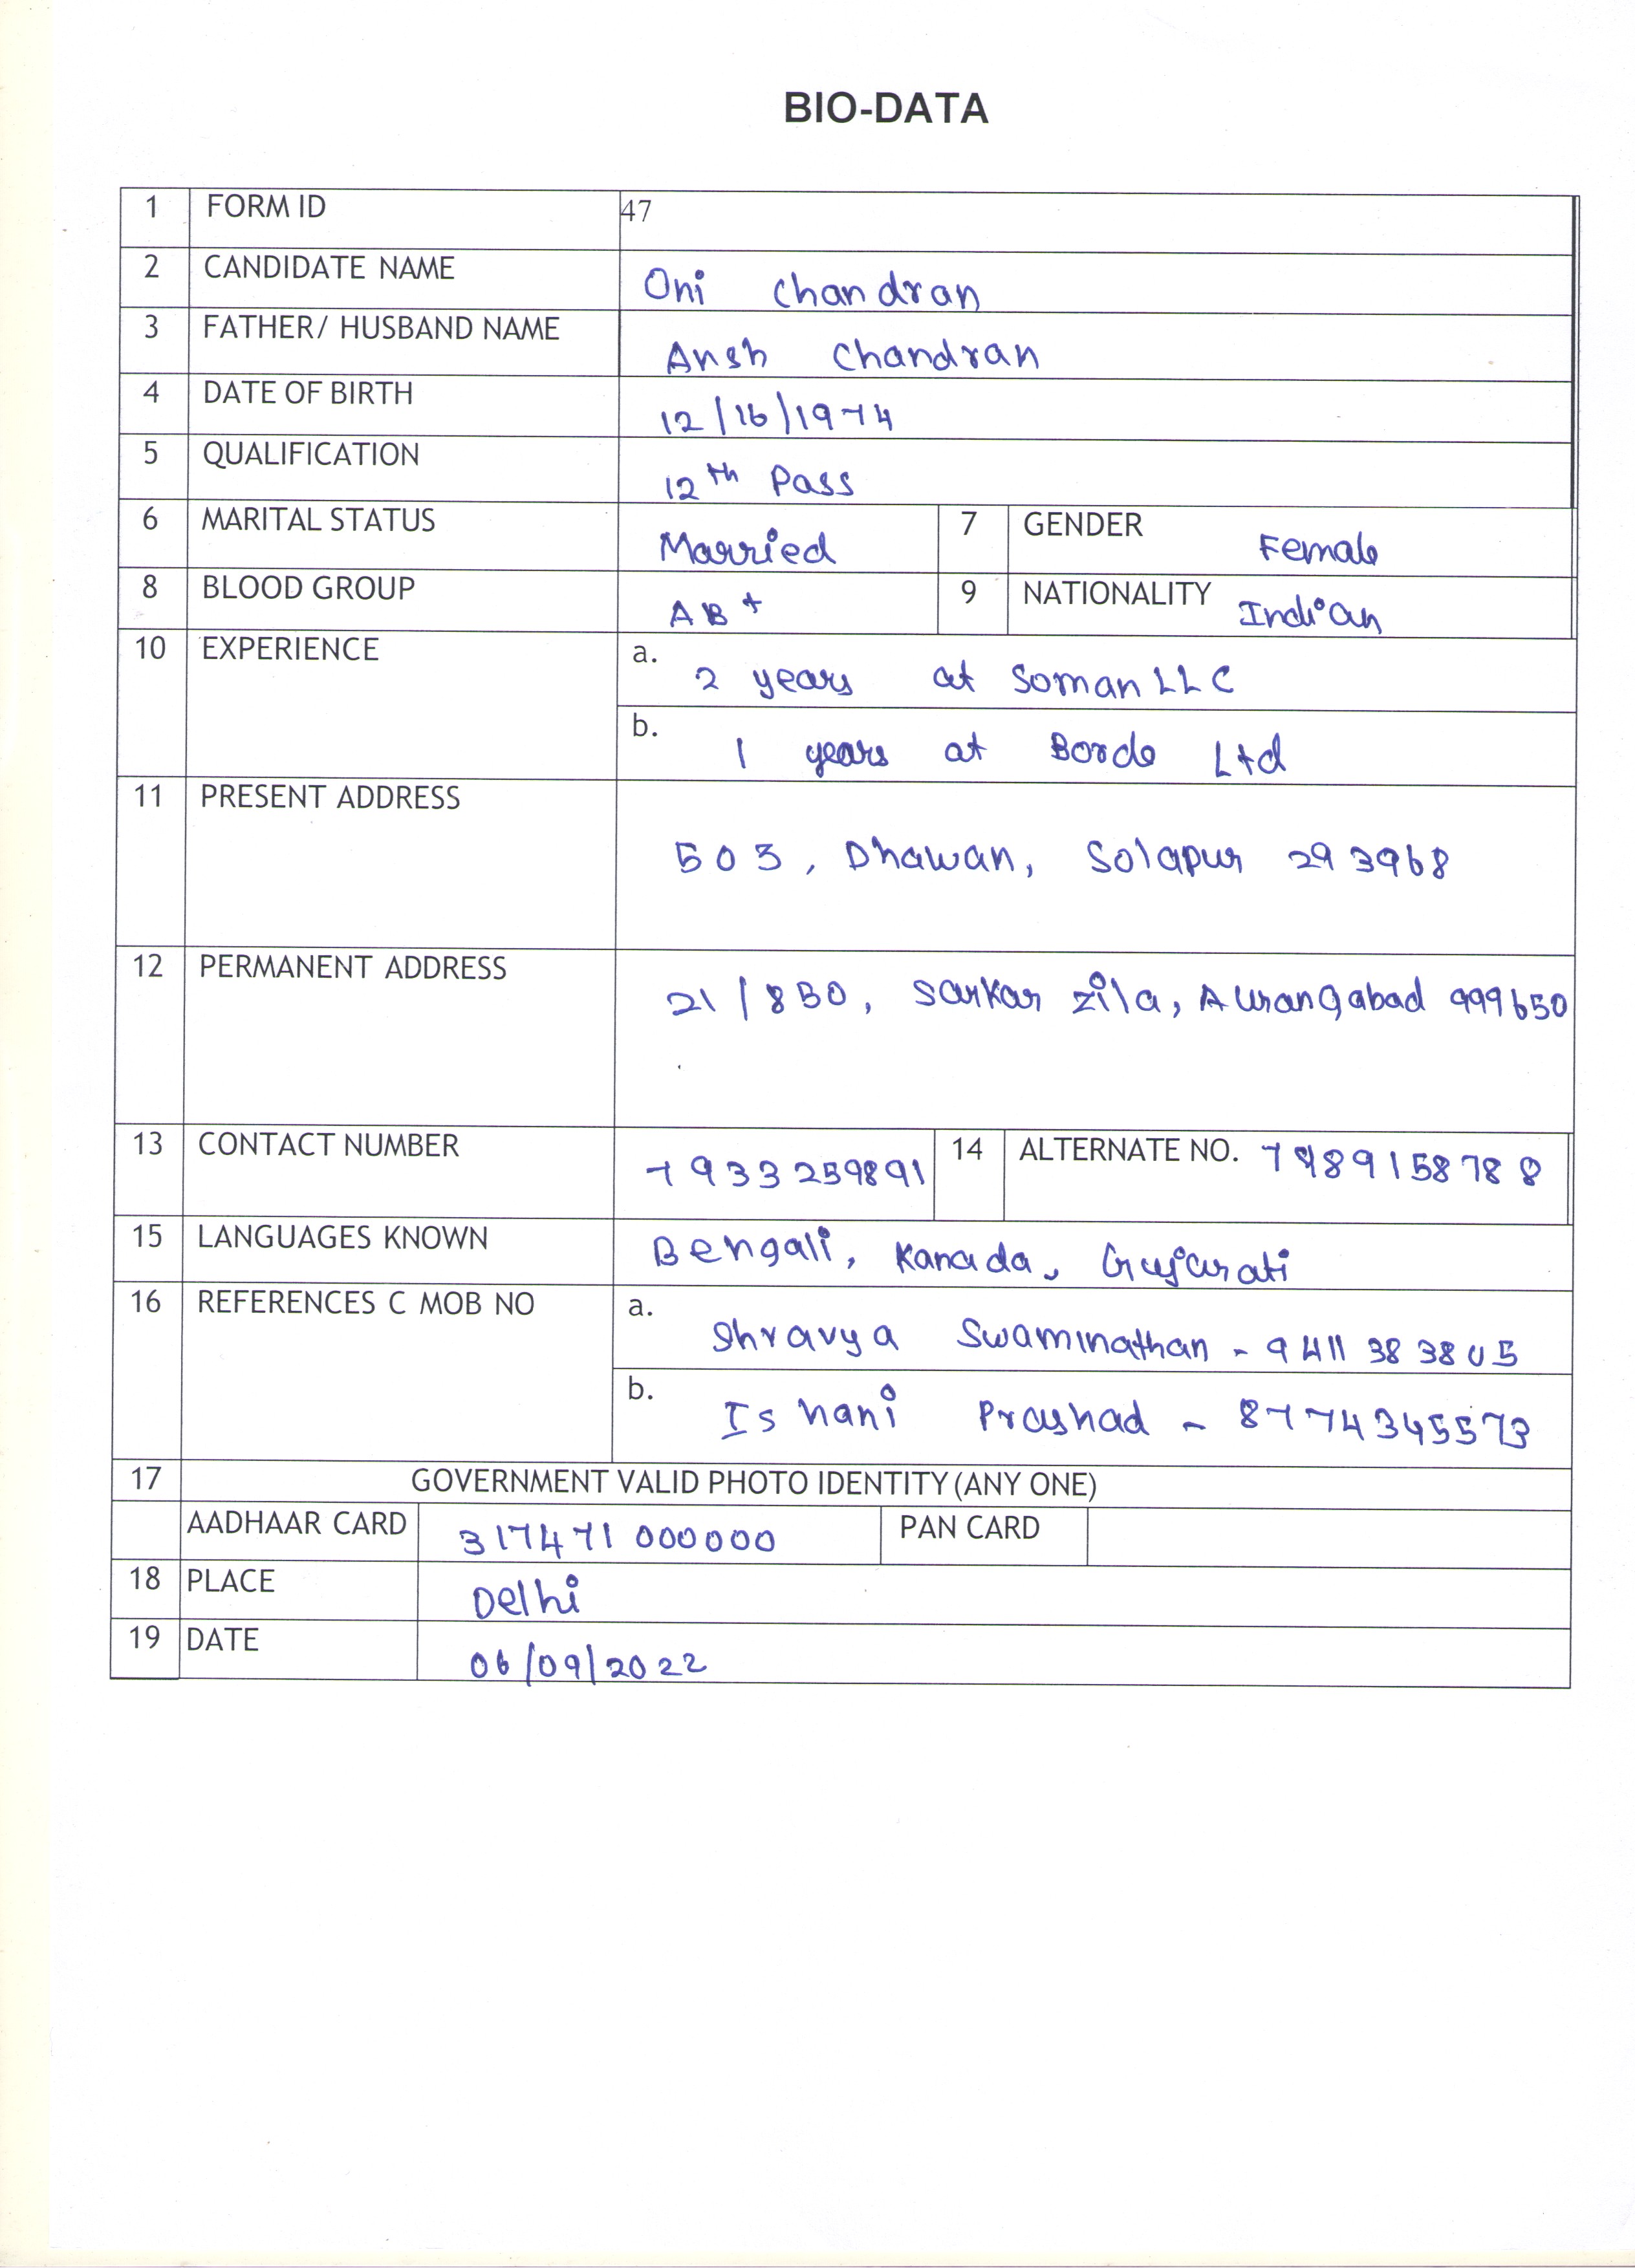 BIO-DATA
1 FORM ID 47
2 CANDIDATE NAME Oni Chandran
3 FATHER/ HUSBAND NAME Ansh Chandran
4 DATE OF BIRTH 12/16/1974
5 QUALIFICATION 12th Pass
6 MARITAL STATUS Married 7 GENDER Female
8 BLOOD GROUP AB+ 9 NATIONALITY Indian
10 EXPERIENCE a. 2 years at Soman LLC
b. 1 years at Borde Ltd
11 PRESENT ADDRESS
503, Dhawan, Solapur 293968
12 PERMANENT ADDRESS
21/830, Sarkar Zila, Aurangabad 999650
13 CONTACT NUMBER 7933259891 14 ALTERNATE NO. 7989158788
15 LANGUAGES KNOWN Bengali, Kanada, Gujarati
16 REFERENCES C MOB NO a. Shravya Swaminathan - 9411383805
b. Ishani Prashad - 8774345573
17 GOVERNMENT VALID PHOTO IDENTITY (ANY ONE)
AADHAAR CARD 317471000000 PAN CARD
18 PLACE Delhi
19 DATE 06/09/2022